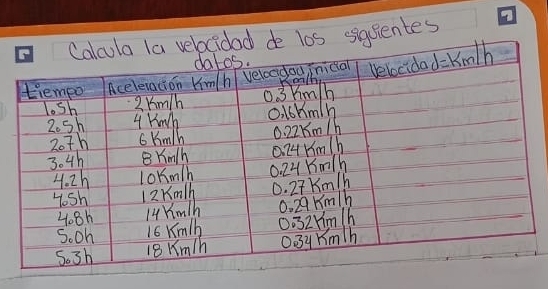 Calcula la velocidad de los siguientes
datos.
tiempo Aceleración Km/h Velocidad inicial Km/h Velocidad=Km/h
1.5h 2 Km/h 0.3 Km/h
2.5h 4 Km/h 0.16 Km/h
2.7h 6 Km/h 0.22 Km/h
3.4h 8 Km/h 0.24 Km/h
4.2h 10 Km/h 0.24 Km/h
4.5h 12 Km/h 0.27 Km/h
4.8h 14 Km/h 0.29 Km/h
5.0h 16 Km/h 0.32 Km/h
5.3h 18 Km/h 0.34 Km/h